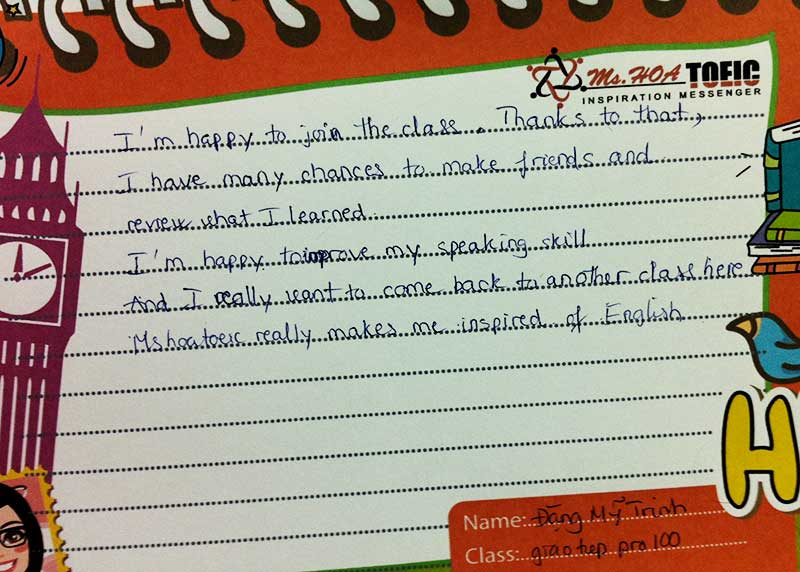 Ms. HOA TOEIC
INSPIRATION MESSENGER
I'm happy to join the class. Thanks to that,
I have many chances to make friends and
review what I learned.
I'm happy to improve my speaking skill
And I really want to come back to another class here
Mshoatoeic really makes me inspired of English
H
Name: Đặng Mỹ Trinh
Class: giao tiep pro 100